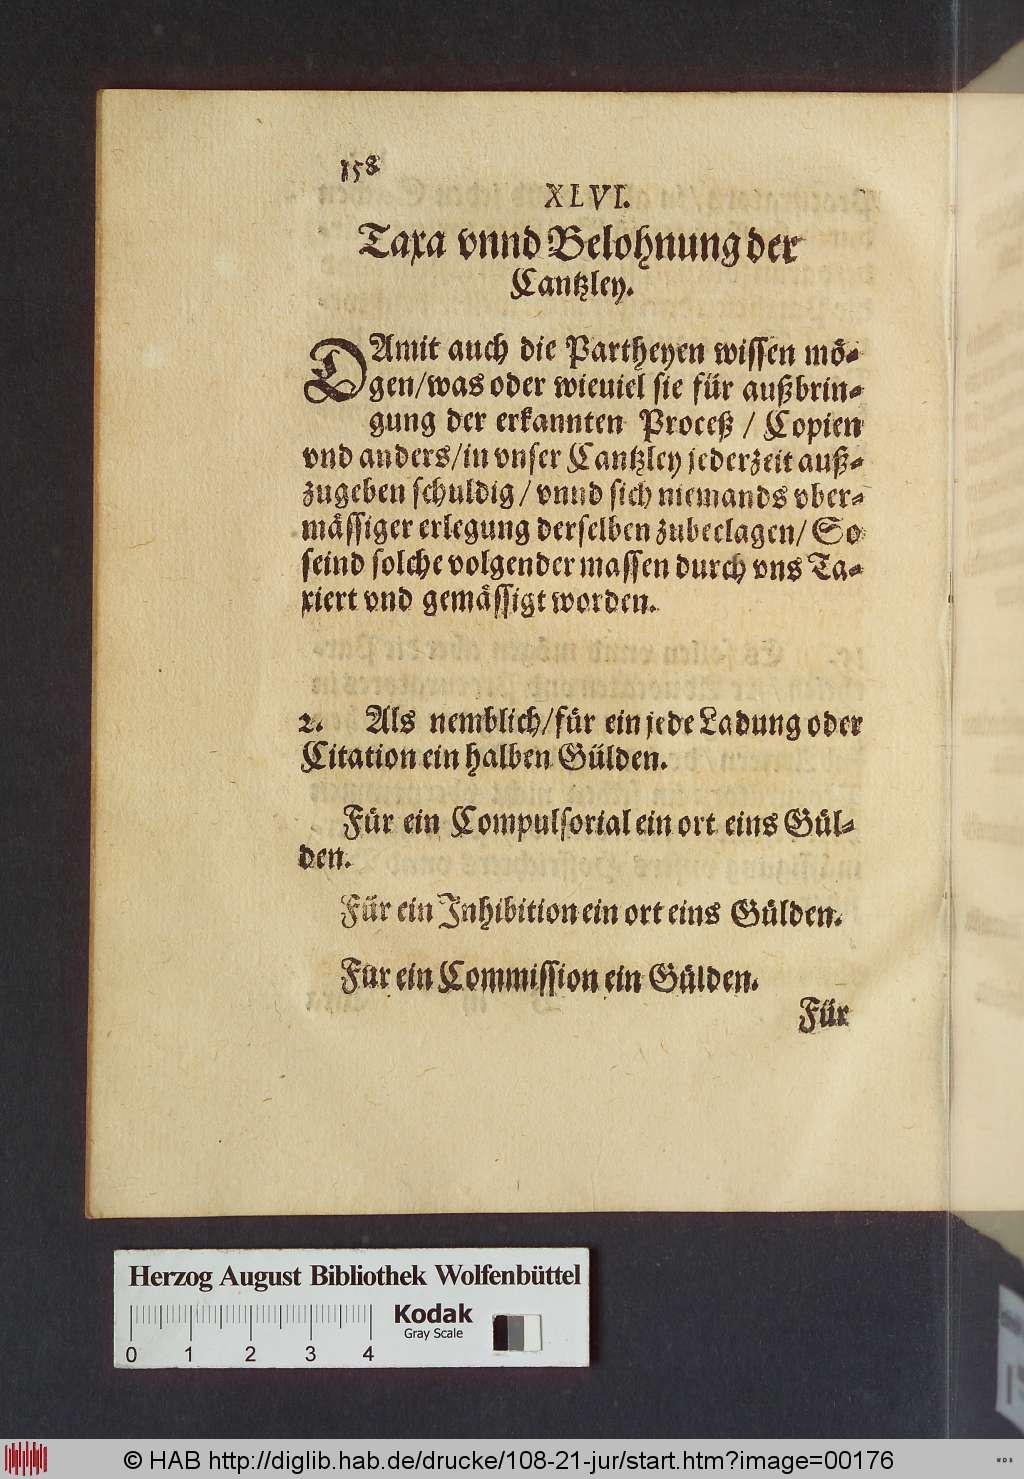 158
XLVI.
Taxa vnnd Belohnung der
Cantzley.
DAmit auch die Partheyen wissen mö-
gen/was oder wieuiel sie für außbrin-
gung der erkannten Proceß / Copien
vnd anders/in vnser Cantzley jederzeit auß-
zugeben schuldig / vnnd sich niemands vber-
mässiger erlegung derselben zubeclagen/ So
seind solche volgender massen durch vns Ta-
xiert vnd gemässigt worden.
2. Als nemblich/für ein jede Ladung oder
Citation ein halben Gülden.
Für ein Compulsorial ein ort eins Gül-
den.
Für ein Inhibition ein ort eins Gülden.
Für ein Commission ein Gülden.
Für
Herzog August Bibliothek Wolfenbüttel
Kodak
Gray Scale
0 1 2 3 4
© HAB http://diglib.hab.de/drucke/108-21-jur/start.htm?image=00176